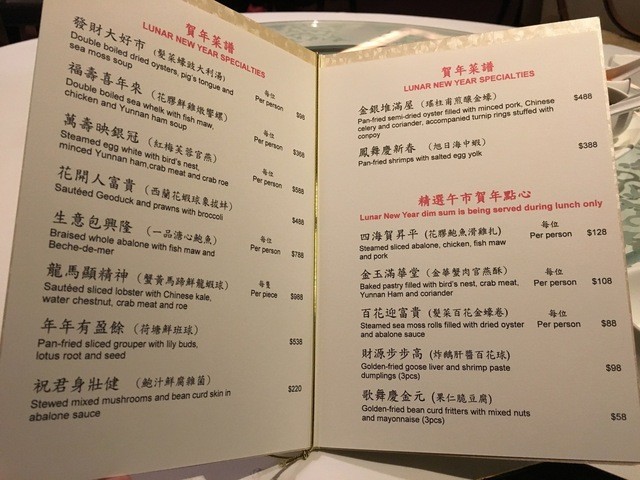 賀年菜譜
LUNAR NEW YEAR SPECIALTIES
發財大好市（髮菜蠔豉大利湯）
Double boiled dried oysters, pig's tongue and
sea moss soup
每位
Per person $98
福壽喜年來（花膠鮮雞燉響螺）
Double boiled sea whelk with fish maw,
chicken and Yunnan ham soup
每位
Per person $368
萬壽映銀冠（紅梅芙蓉官燕）
Steamed egg white with bird's nest,
minced Yunnan ham,crab meat and crab roe
每位
Per person $588
花開人富貴（西蘭花蝦球象拔蚌）
Sautéed Geoduck and prawns with broccoli
$488
生意包興隆（一品溏心鮑魚）
Braised whole abalone with fish maw and
Beche-de-mer
每位
Per person $788
龍馬顯精神（蟹黃馬蹄鮮龍蝦球）
Sautéed sliced lobster with Chinese kale,
water chestnut, crab meat and roe
每隻
Per piece $988
年年有盈餘（荷塘鮮班球）
Pan-fried sliced grouper with lily buds,
lotus root and seed
$538
祝君身壯健（鮑汁鮮腐雜菌）
Stewed mixed mushrooms and bean curd skin in
abalone sauce
$220
賀年菜譜
LUNAR NEW YEAR SPECIALTIES
金銀堆滿屋（瑤柱甫煎釀金蠔）
$488
Pan-fried semi-dried oyster filled with minced pork, Chinese
celery and coriander, accompanied turnip rings stuffed with
conpoy
鳳舞慶新春（旭日海中蝦）
$388
Pan-fried shrimps with salted egg yolk
精選午市賀年點心
Lunar New Year dim sum is being served during lunch only
四海賀昇平（花膠鮑魚滑雞扎）
Steamed sliced abalone, chicken, fish maw
and pork
每位
Per person $128
金玉滿華堂（金華蟹肉官燕酥）
Baked pastry filled with bird's nest, crab meat,
Yunnan Ham and coriander
每位
Per person $108
百花迎富貴（髮菜百花金蠔卷）
Steamed sea moss rolls filled with dried oyster
and abalone sauce
每位
Per person $88
財源步步高（炸鵝肝醬百花球）
Golden-fried goose liver and shrimp paste
dumplings (3pcs)
$98
歌舞慶金元（果仁脆豆腐）
Golden-fried bean curd fritters with mixed nuts
and mayonnaise (3pcs)
$58